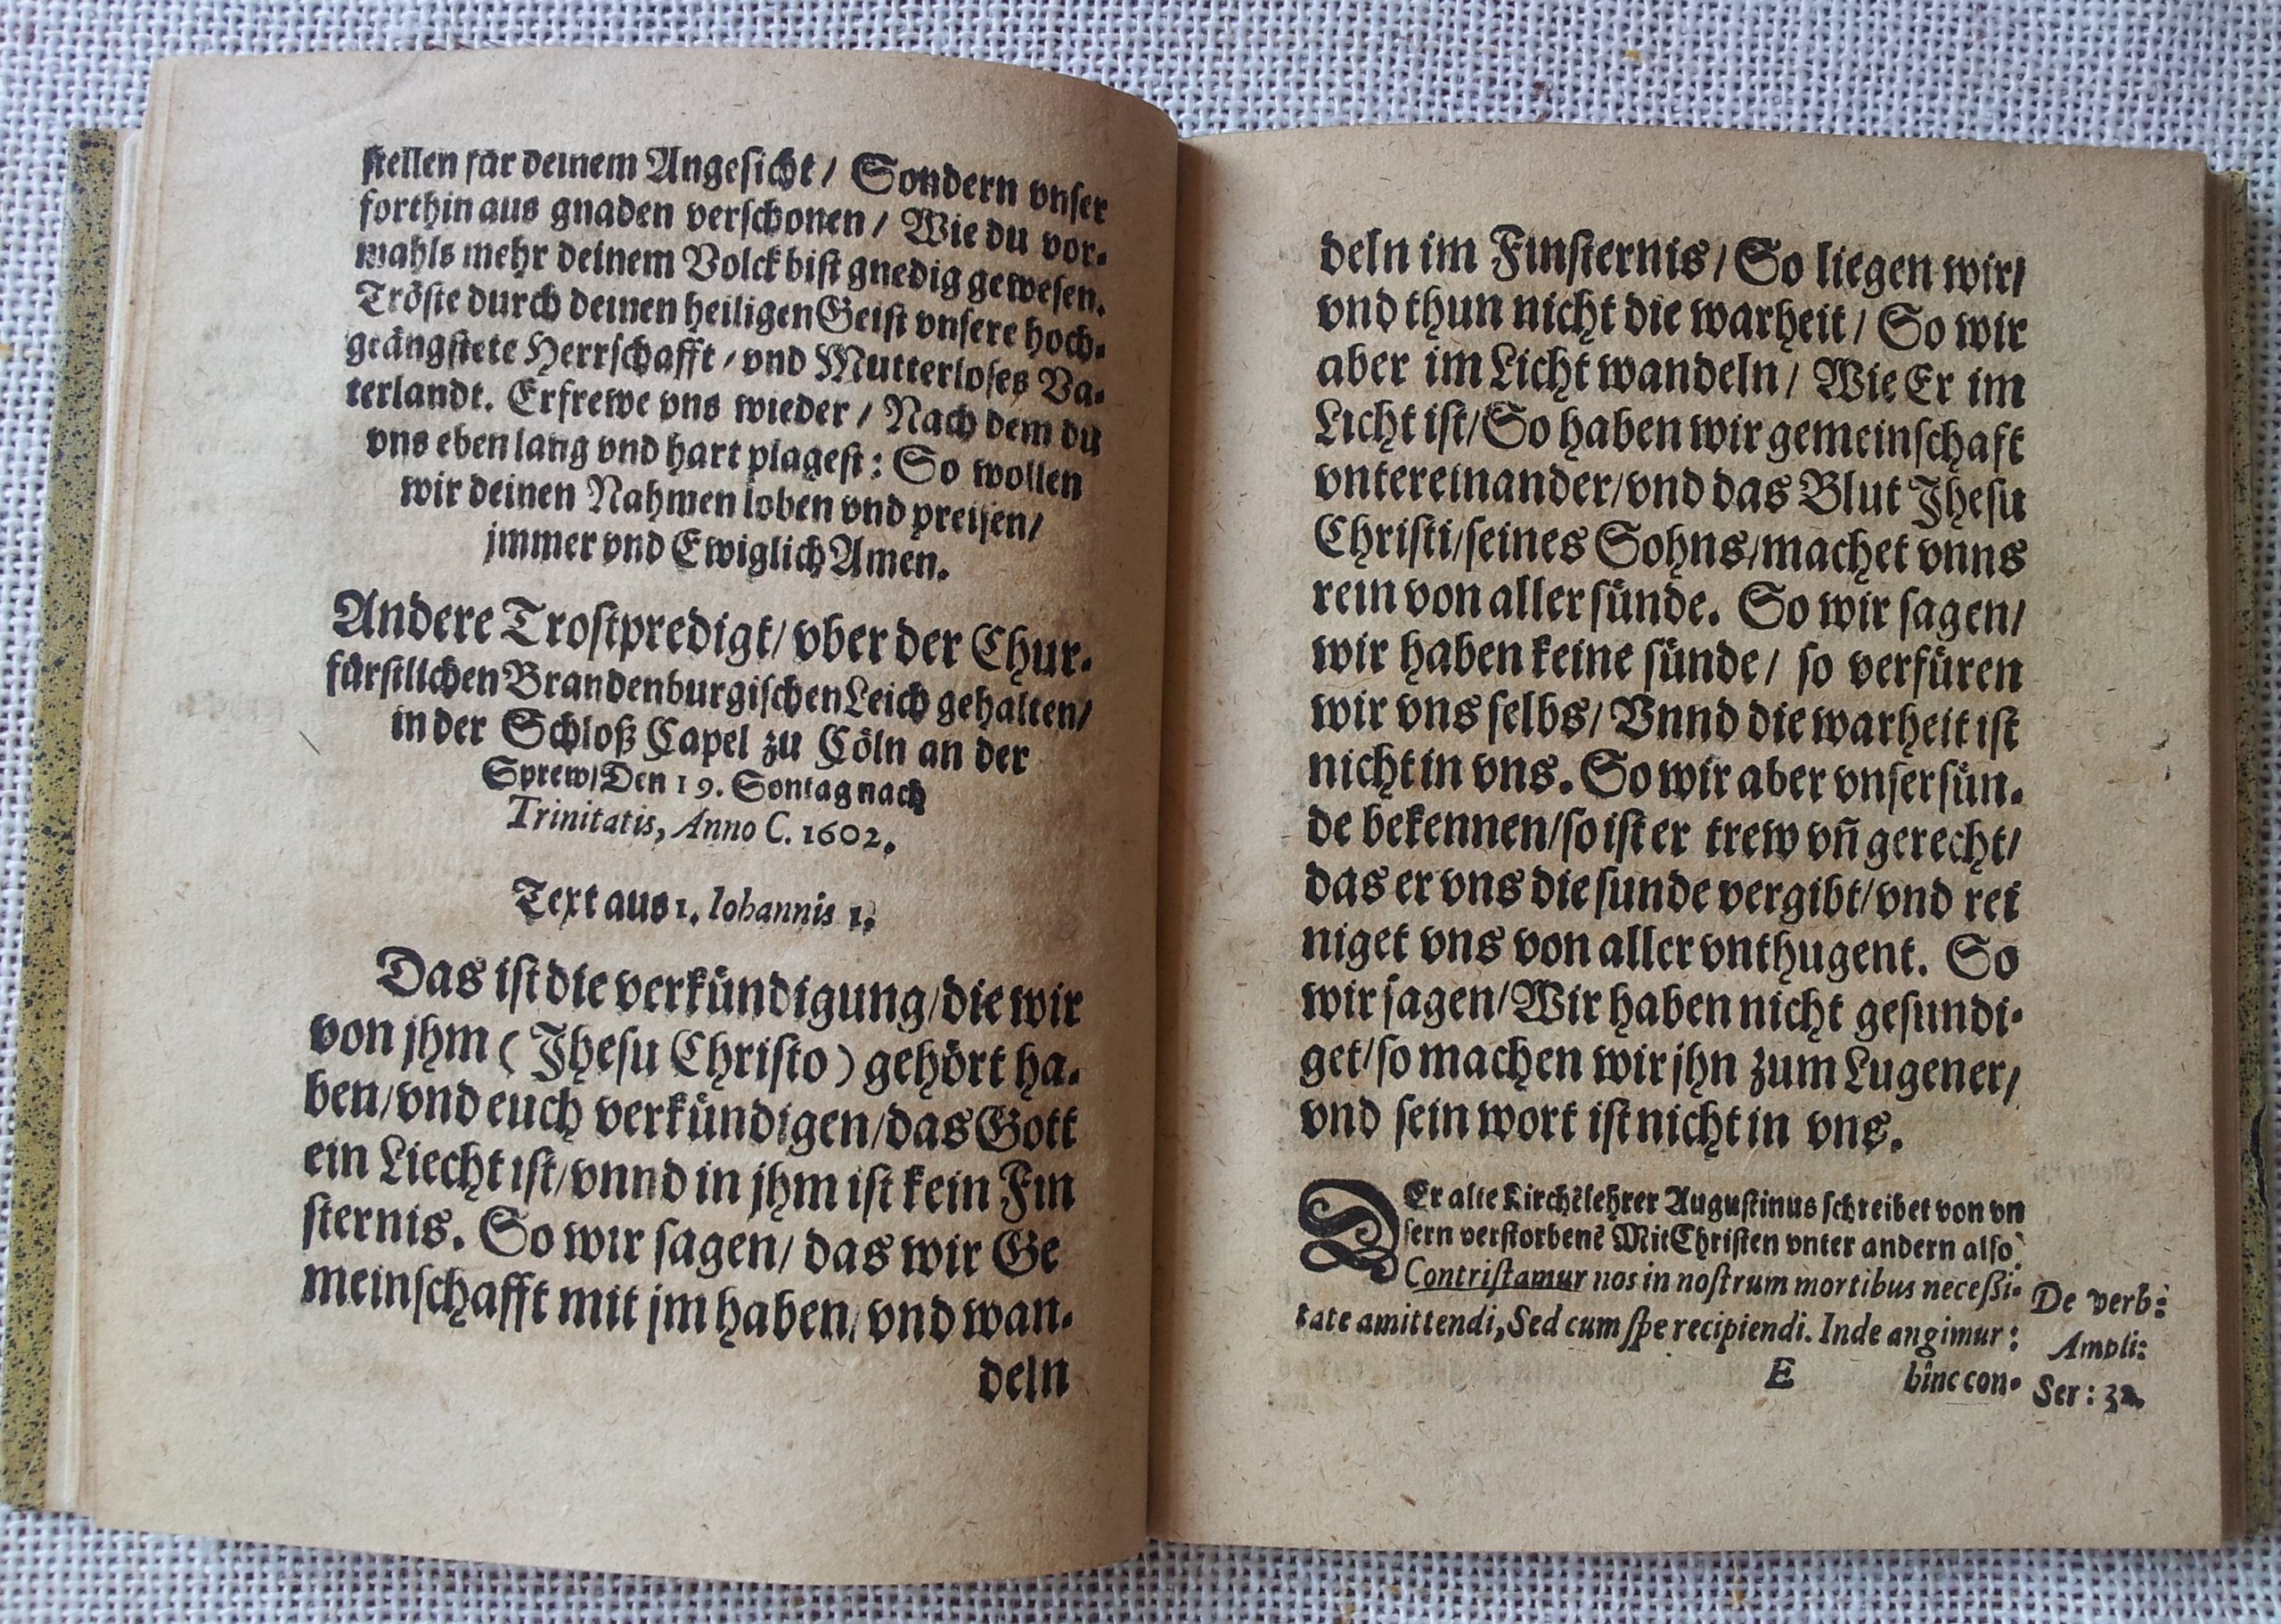 stellen für deinem Angesicht / Sondern vnser
forthin aus gnaden verschonen / Wie du vor-
mahls mehr deinem Volck bist gnedig gewesen.
Tröste durch deinen heiligen Geist vnsere hoch-
geängstete Herrschafft / vnd Mutterloses Va-
terlandt. Erfrewe vns wieder / Nach dem du
vns eben lang vnd hart plagest: So wollen
wir deinen Nahmen loben vnd preisen/
jmmer vnd Ewiglich Amen.
Andere Trostpredigt/ vber der Chur-
fürstlichen Brandenburgischen Leich gehalten/
in der Schloß Capel zu Cöln an der
Sprew/ Den 19. Sontag nach
Trinitatis, Anno C. 1602.
Text aus 1. Iohannis 1.
Das ist die verkündigung/ die wir
von jhm ( Jhesu Christo ) gehört ha-
ben/ vnd euch verkündigen/ das Gott
ein Liecht ist/ vnnd in jhm ist kein Fin
sternis. So wir sagen/ das wir Ge
meinschafft mit jm haben/ vnd wan-
deln
deln im Finsternis / So liegen wir/
vnd thun nicht die warheit / So wir
aber im Licht wandeln / Wie Er im
Licht ist/ So haben wir gemeinschaft
vntereinander/ vnd das Blut Jhesu
Christi/ seines Sohns/ machet vnns
rein von aller sünde. So wir sagen/
wir haben keine sünde / so verfüren
wir vns selbs/ Vnnd die warheit ist
nicht in vns. So wir aber vnser sün-
de bekennen/ so ist er trew vñ gerecht/
das er vns die sunde vergibt/ vnd rei
niget vns von aller vnthugent. So
wir sagen/ Wir haben nicht gesundi-
get/ so machen wir jhn zum Lugener/
vnd sein wort ist nicht in vns.
DEr alte Kirchẽlehrer Augustinus schreibet von vn
sern verstorbenẽ MitChristen vnter andern also
Contristamur nos in nostrum mortibus necessi-
tate amittendi, Sed cum spe recipiendi. Inde angimur:
E hinc con-
De verb:
Ampli:
Ser: 32.